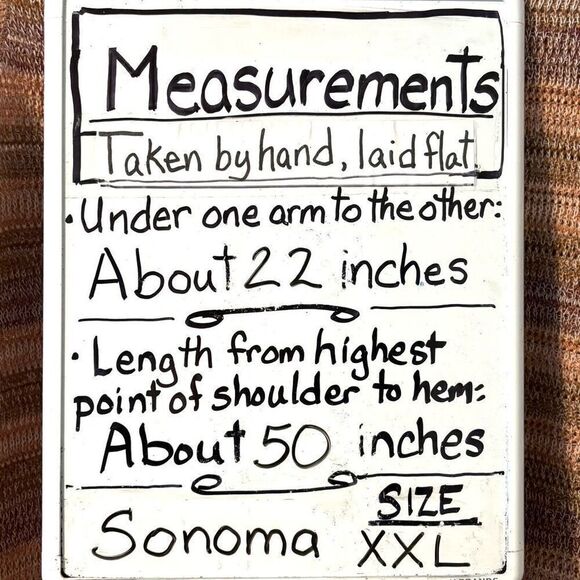 Measurements
Taken by hand, laid flat.
• Under one arm to the other:
About 22 inches
• Length from highest
point of shoulder to hem:
About 50 inches
SIZE
Sonoma XXL